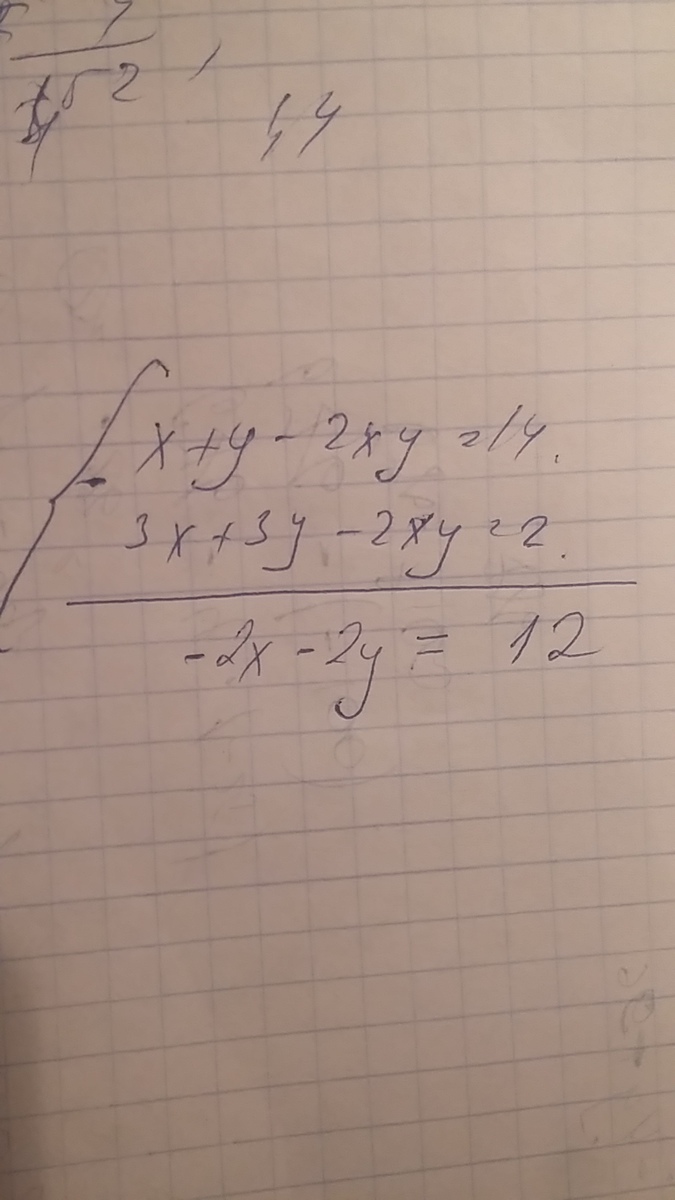 √2 ,
x + y - 2xy = 14.
3x + 3y - 2xy = 2.
-2x - 2y = 12